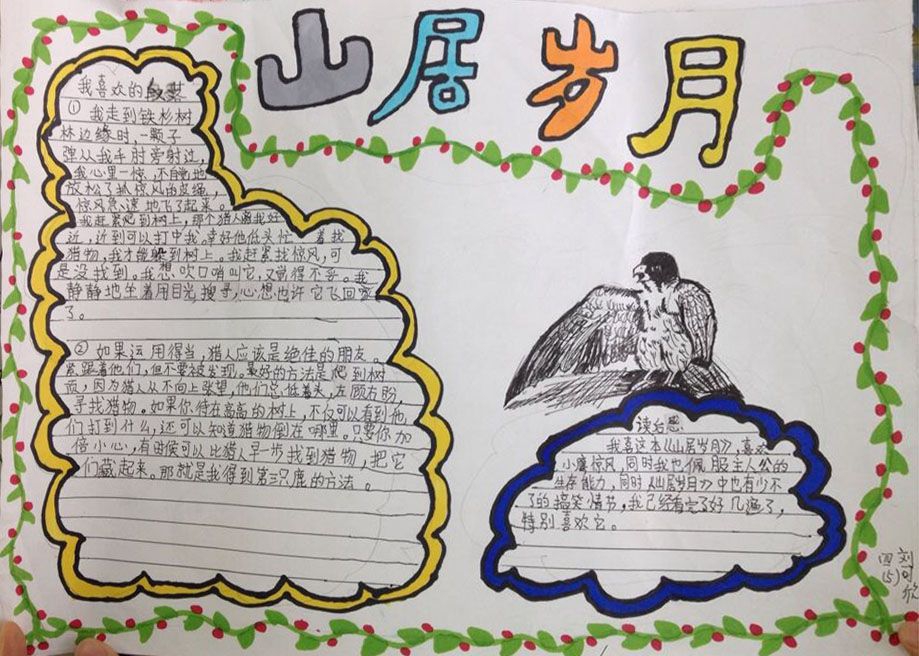 山居岁月
我喜欢的段落
① 我走到铁杉树
林边缘时,一颗子
弹从我手肘旁射过,
我心里一惊,不自觉地
放松了抓惊风的皮绳,
惊风急速地飞了起来。
我赶紧爬到树上,那个猎人离我好
近,近到可以打中我,幸好他低头忙着找
猎物,我才能躲到树上。我赶紧找惊风,可
是没找到。我想吹口哨叫它,又觉得不妥。我
静静地坐着用目光搜寻,心想也许它飞回家
了。
② 如果运用得当,猎人应该是绝佳的朋友。
紧跟着他们,但不要被发现。最好的方法是爬到树
顶,因为猎人从不向上张望,他们总低着头,左顾右盼,
寻找猎物。如果你待在高高的树上,不仅可以看到他
们打到什么,还可以知道猎物倒在哪里。只要你加
倍小心,有时候可以比猎人早一步找到猎物,把它
们藏起来。那就是我得到第三只鹿的方法。
读后感
我喜这本《山居岁月》,喜欢
小鹰惊风,同时我也佩服主人公的
生存能力,同时《山居岁月》中也有少不
了的搞笑情节,我已经看完了好几遍了,
特别喜欢它。
四(5)
刘可欣